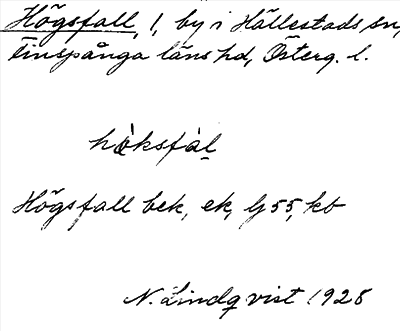 Högsfall, 1, by i Hällestads sn,
Finspånga läns hd, Österg. l.
hö̀ksfàl
Högsfall bek, ek, Gj 55, kb
N. Lindqvist 1928